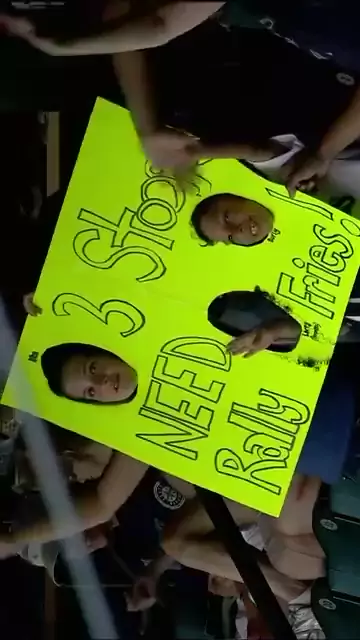 3 Stooges
NEED
Rally Fries!